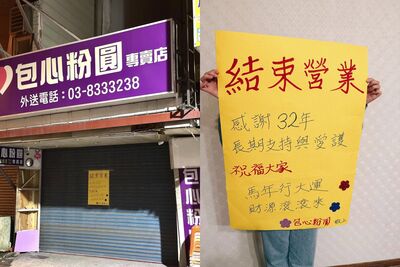 包心粉圓
專賣店
外送電話：03-8333238
心粉圓
結束營業
結束營業
感謝 32年
長期支持與愛護
祝福大家
馬年行大運
財源滾滾來
包心粉圓 敬上